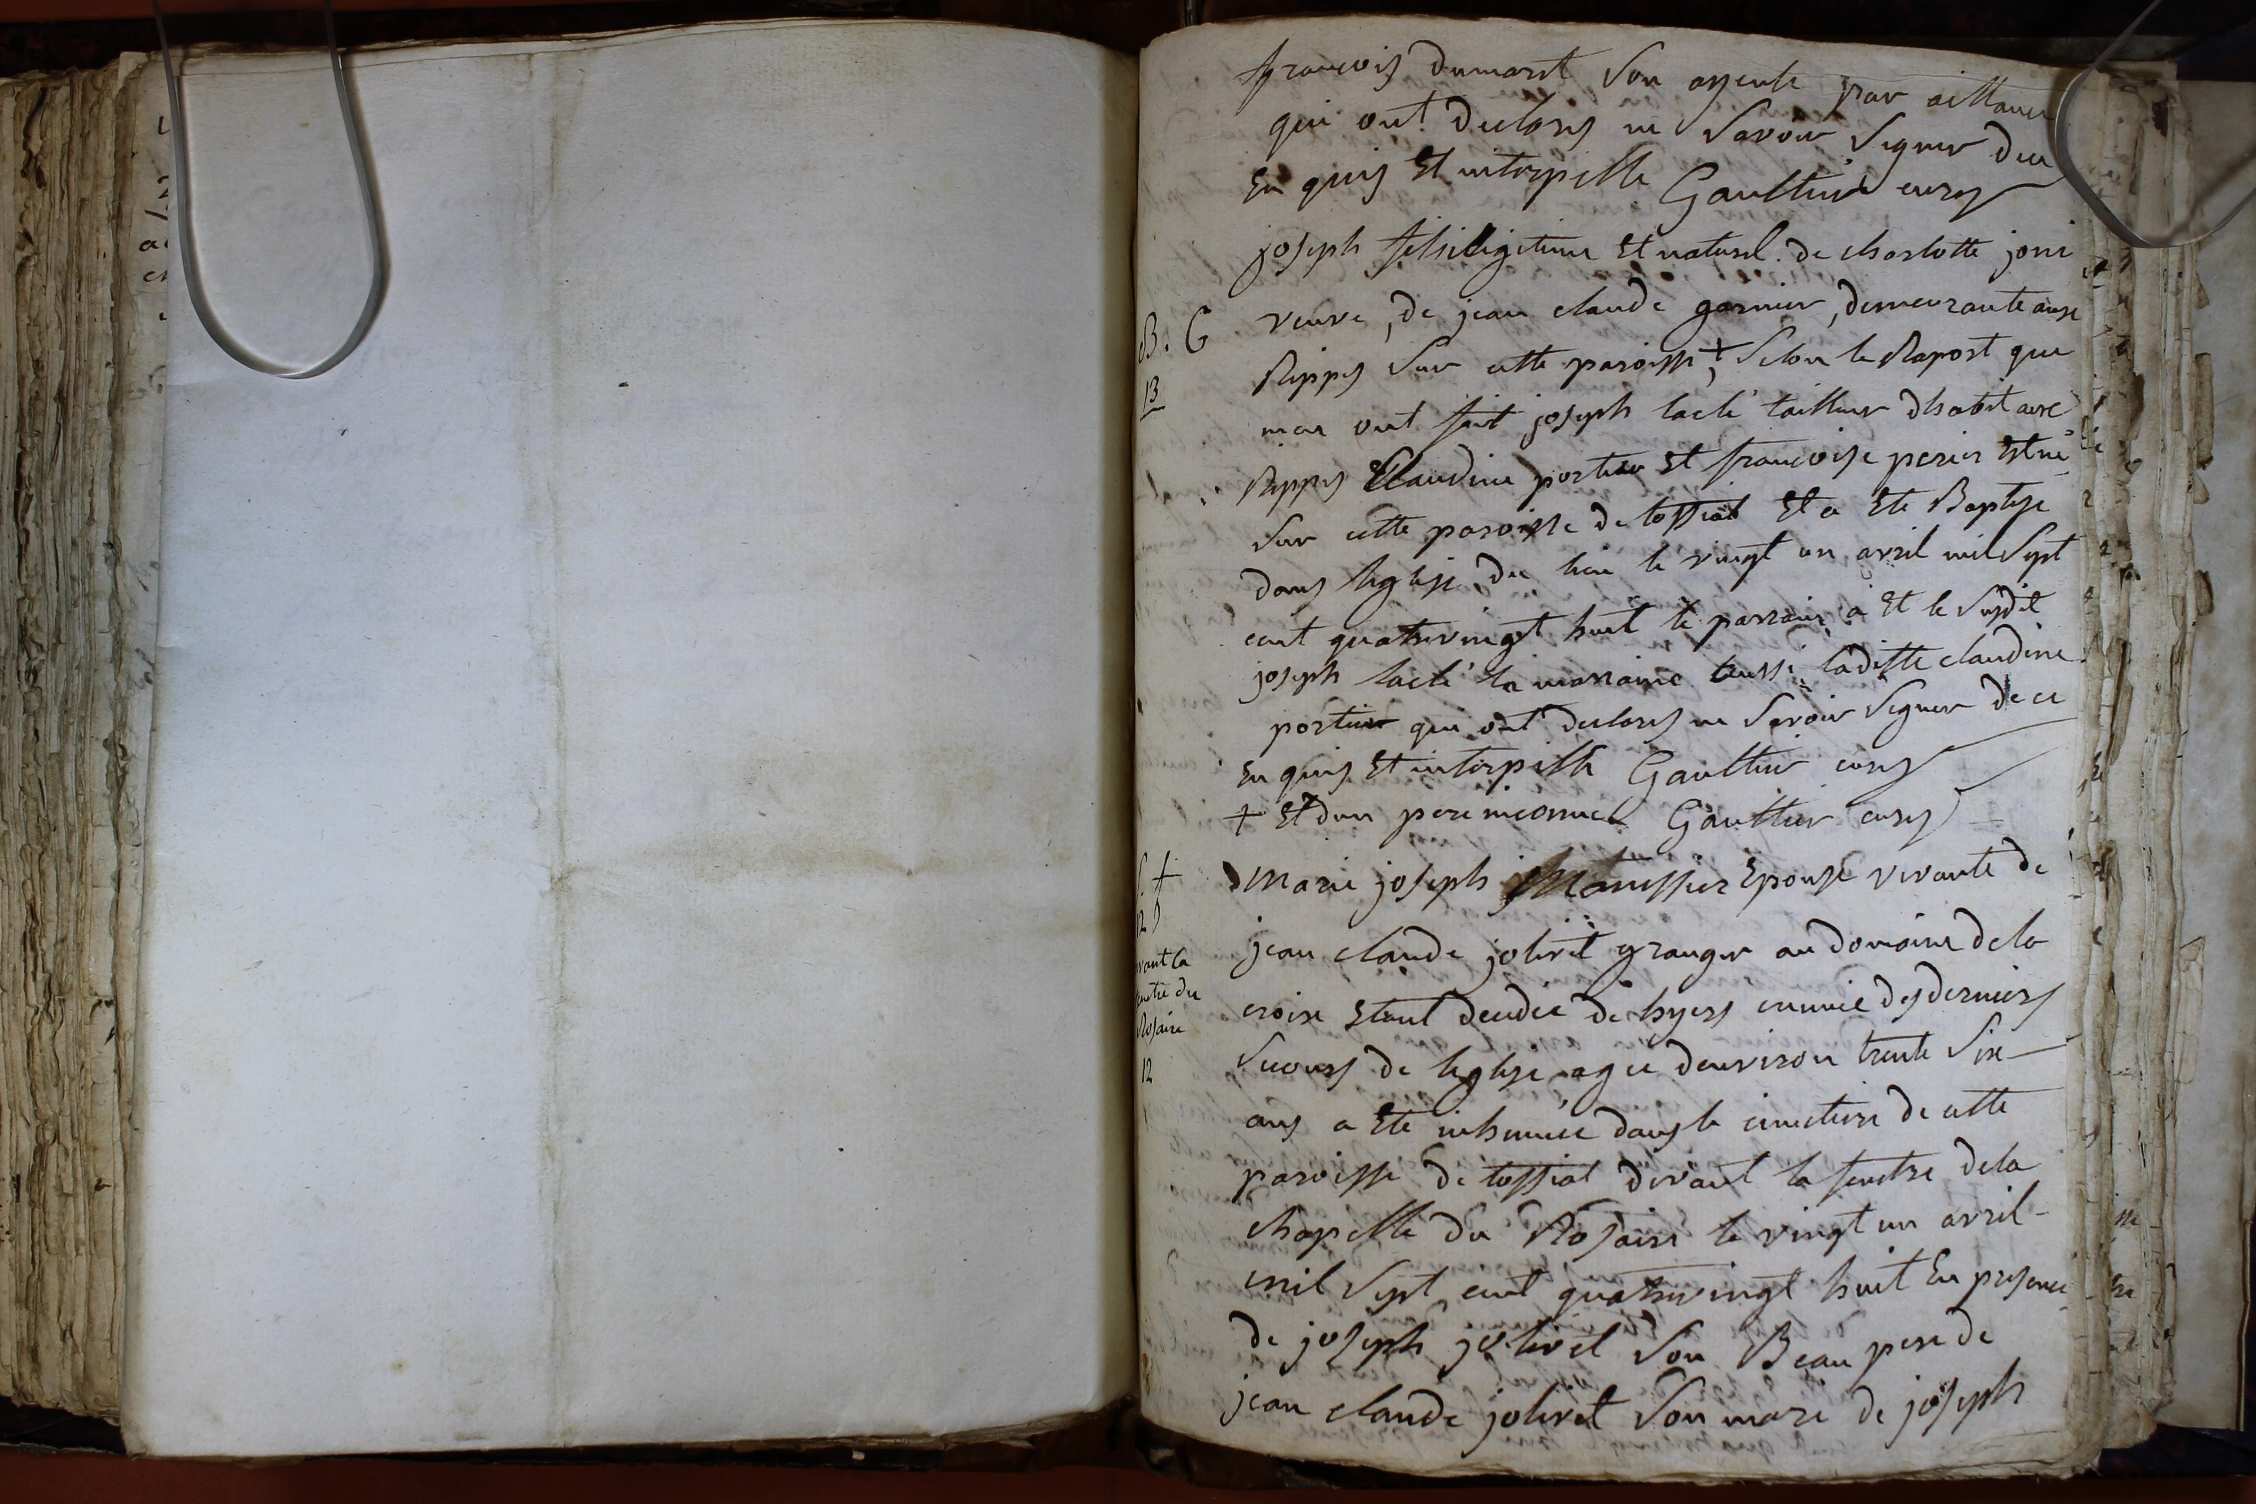 françois dumarest son oncle par alliance
qui ont declarés ne savoir signer deu
En quis Et interpellé Gaulthier curé
joseph fils illigetime Et naturel de charlotte joni
B. G veuve, de jean claude garnier, demeurante aux
13 Rippes sur cette paroisse + selon le Raport que
mon ont fait joseph laclé tailleur dhabit aux
Rippes Claudine portier Et françoise perier Est né
sur cette paroisse de tossiat Et a Ete Baptisé
dans leglise du lieu le vingt un avril mil sept
cent quatrevingt huit le parrain a Et le susdit
joseph laclé la marraine aussi laditte claudine
portier qui ont declarés ne savoir signer de ce
En quis Et interpellé Gaulthier curé
+ Et dun pere inconnu Gaulthier curé
S. +
12
Marie joseph Manissier Epouse vivante de
jean claude jolivet granger au domaine dela
vant la
enetre du
Rosaire
12
croix Etant decedée de hyers munie des derniers
secours de leglise agée denviron trente six
ans a Ete inhumée dans le cimetiere de cette
paroisse de tossiat devant la fenetre dela
chapelle du Rosaire le vingt un avril
mil sept cent quatrevingt huit En presence
de joseph jolivet son Beau pere de
jean claude jolivet son mari de joseph